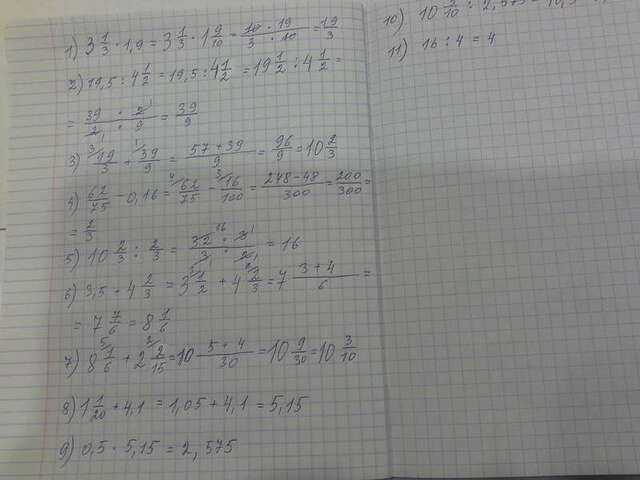 1) 3 1/3 · 1,9 = 3 1/3 · 1 9/10 = 10 · 19 / 3 · 10 = 19/3
2) 19,5 : 4 1/2 = 19,5 : 4 1/2 = 19 1/2 : 4 1/2 =
= 39 · 2 / 2 · 9 = 39/9
3) 19/3 + 39/9 = 57 + 39 / 9 = 96/9 = 10 2/3
4) 62/75 − 0,16 = 62/75 − 16/100 = 248 − 48 / 300 = 200/300 =
= 2/3
5) 10 2/3 : 2/3 = 32 · 3 / 3 · 2 = 16
6) 3,5 + 4 2/3 = 3 1/2 + 4 2/3 = 7 3 + 4 / 6 =
= 7 7/6 = 8 1/6
7) 8 1/6 + 2 2/15 = 10 5 + 4 / 30 = 10 9/30 = 10 3/10
8) 1 1/20 + 4,1 = 1,05 + 4,1 = 5,15
9) 0,5 · 5,15 = 2,575
10) 10 3/10 : 2,575 = 10,3
11) 16 : 4 = 4